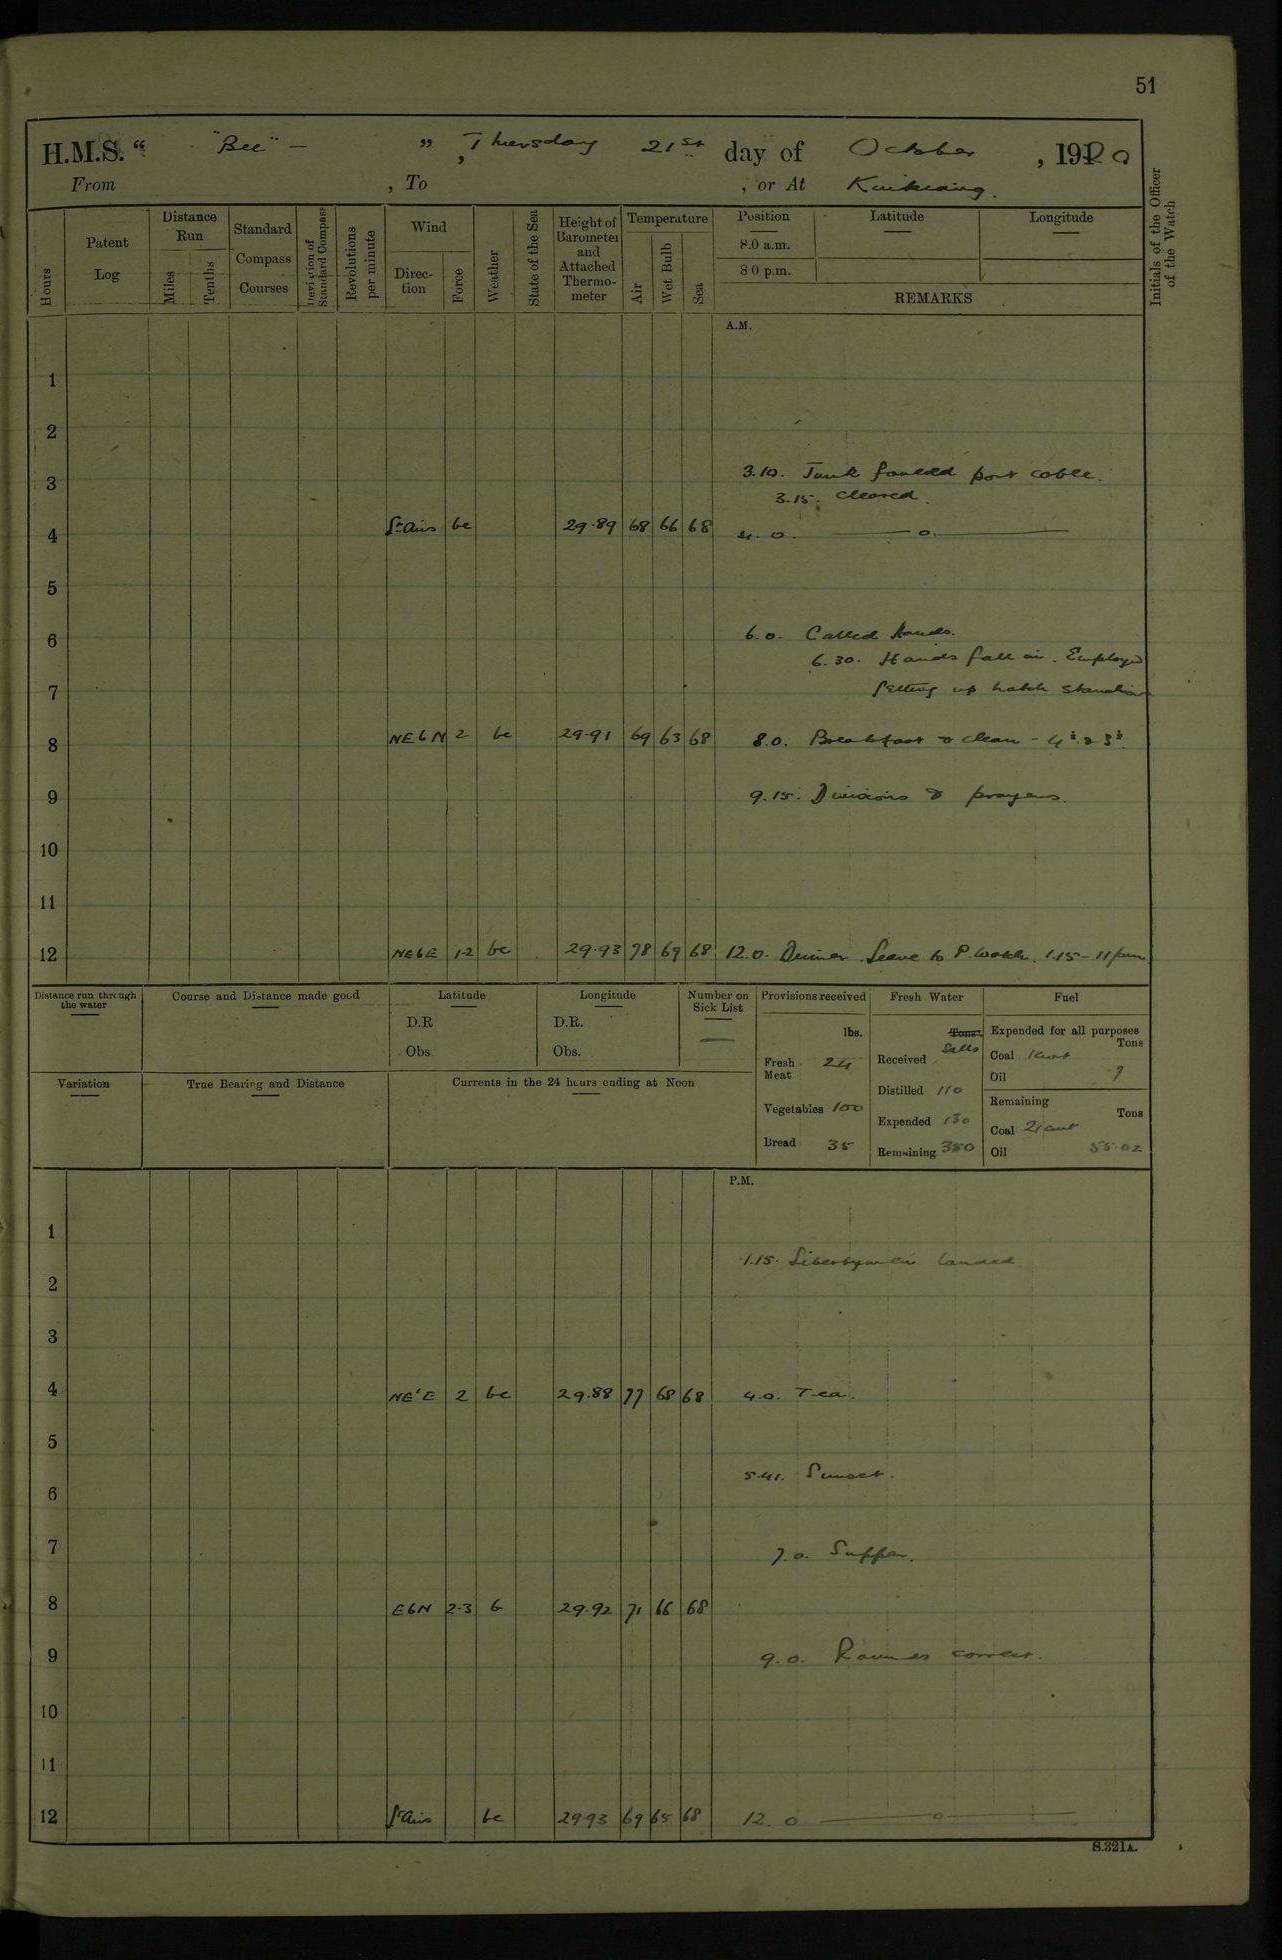 51
H.M.S. “ "Bee" – ” , Thursday 21st day of October , 1920
From , To , or At Kiukiang.
Hours
Patent Log
Distance Run
Miles
Tenths
Standard Compass Courses
Deviation of Standard Compass
Revolutions per minute
Wind
Direction
Force
Weather
State of the Sea
Height of Barometer and Attached Thermometer
Temperature
Air
Wet Bulb
Sea
Position
8.0 a.m.
8 0 p.m.
Latitude
Longitude
REMARKS
Initials of the Officer of the Watch
A.M.
1
2
3 3.10. Junk fouled port cable.
3.15. cleared.
4 Lt Airs bc 29.89 68 66 68 4. 0. —o—
5
6 6.0. Called hands.
6.30. Hands fall in. Employed
7 Setting up hatch stanchion
8 NE b N 2 bc 29.91 69 63 68 8.0. Breakfast & clean –
9 9.15. Divisions & prayers.
10
11
12 NE b E 1-2 bc 29.93 78 69 68 12.0. Dinner. Leave to P. Watch. 1.15 – 11 pm
Distance run through the water
Course and Distance made good
Latitude
D.R
Obs
Longitude
D.R.
Obs.
Number on Sick List
—
Provisions received
lbs.
Fresh Meat 24
Vegetables 100
Bread 35
Fresh Water
Tons.
Galls
Received
Distilled 110
Expended 130
Remaining 350
Fuel
Expended for all purposes
Tons
Coal 1 cwt
Oil .9
Remaining
Tons
Coal 21 cwt
Oil 55.02
Variation
True Bearing and Distance
Currents in the 24 hours ending at Noon
P.M.
1
1.15. Libertymen landed.
2
3
4 NE'E 2 bc 29.88 77 68 68 4.0. Tea.
5
5.41. Sunset.
6
7 7.0. Supper.
8 E b N 2-3 b 29.92 71 66 68
9 9.0. Rounds correct.
10
11
12 Lt Airs bc 29.93 69 65 68 12. 0 —o—
S.321A.